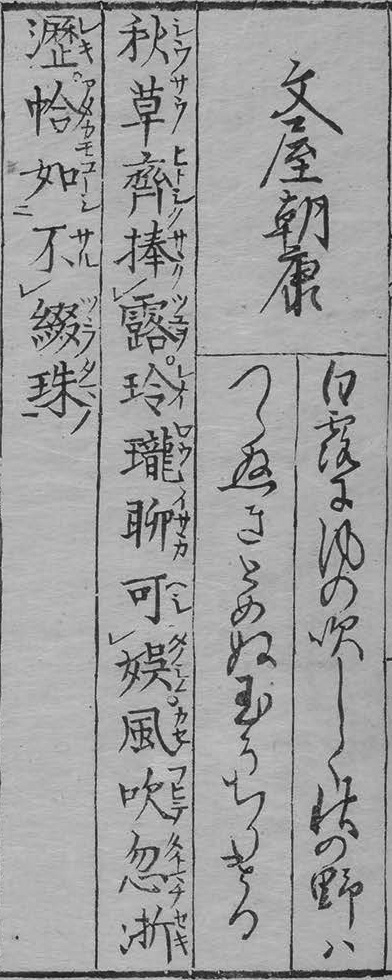 文屋朝康
白露に風の吹しく秋の野ハ
つらぬきとめぬ玉そちりける
秋草齊捧露玲瓏聊可娯風吹忽淅
瀝恰如不綴珠